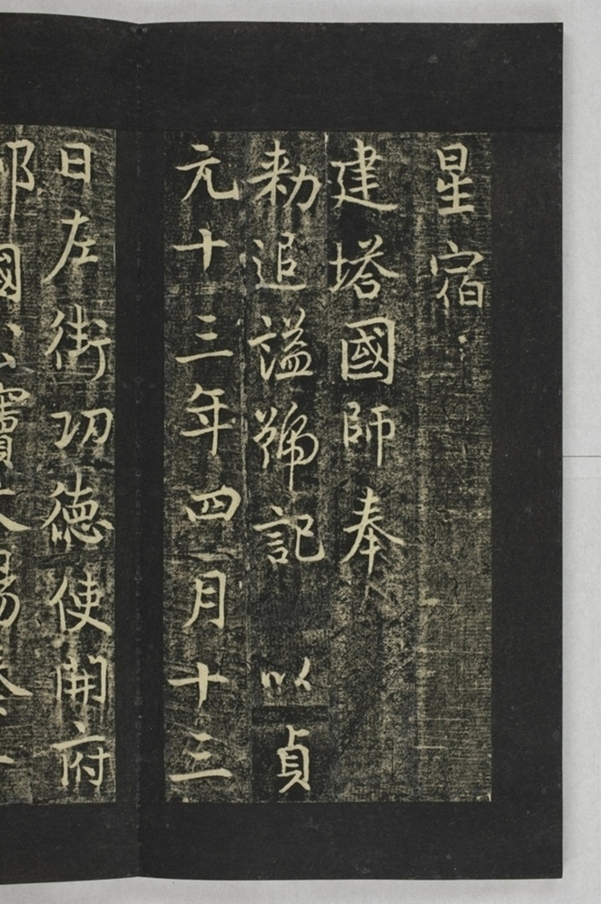 星宿
建塔國師奉
勑追謚號記 以貞
元十三年四月十三
日左街功德使開府
邠國公竇文場奏